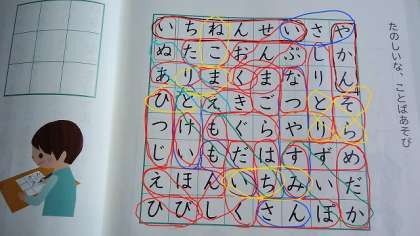 たのしいな、ことばあそび
いちねんせいさや
ぬたこおんぷしか
ありまくまなりん
ひとえきごつとそ
つけもぐらやりら
じいもだはすずめ
えほんいちみいだ
ひびしくさんぽか